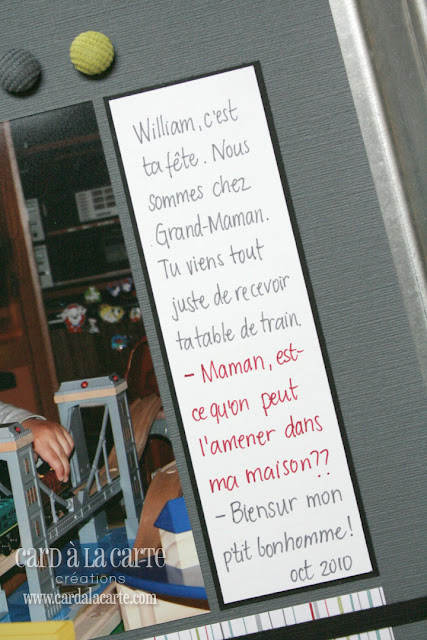 William, c'est
ta fête. Nous
sommes chez
Grand-Maman.
Tu viens tout
juste de recevoir
ta table de train.
- Maman, est-
ce qu'on peut
l'amener dans
ma maison??
- Biensur mon
p'tit bonhomme!
oct 2010
CARD À LA CARTE
créations
www.cardalacarte.com